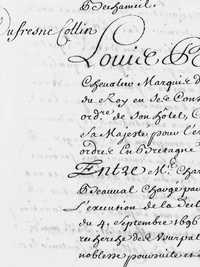 Bechameil
Dufresne Collin
Louice Be
Chevalier Marquis d
du Roy en ses Cons
ordre de son hotel, C
Sa Majesté pour l'ex
ordres En Bretagne
Entre Mr. Char
Beauval Chargé pa
L'execution de la Decl
du 4. Septembre 1696
recherche des Usurpat
noblesse poursuite et d